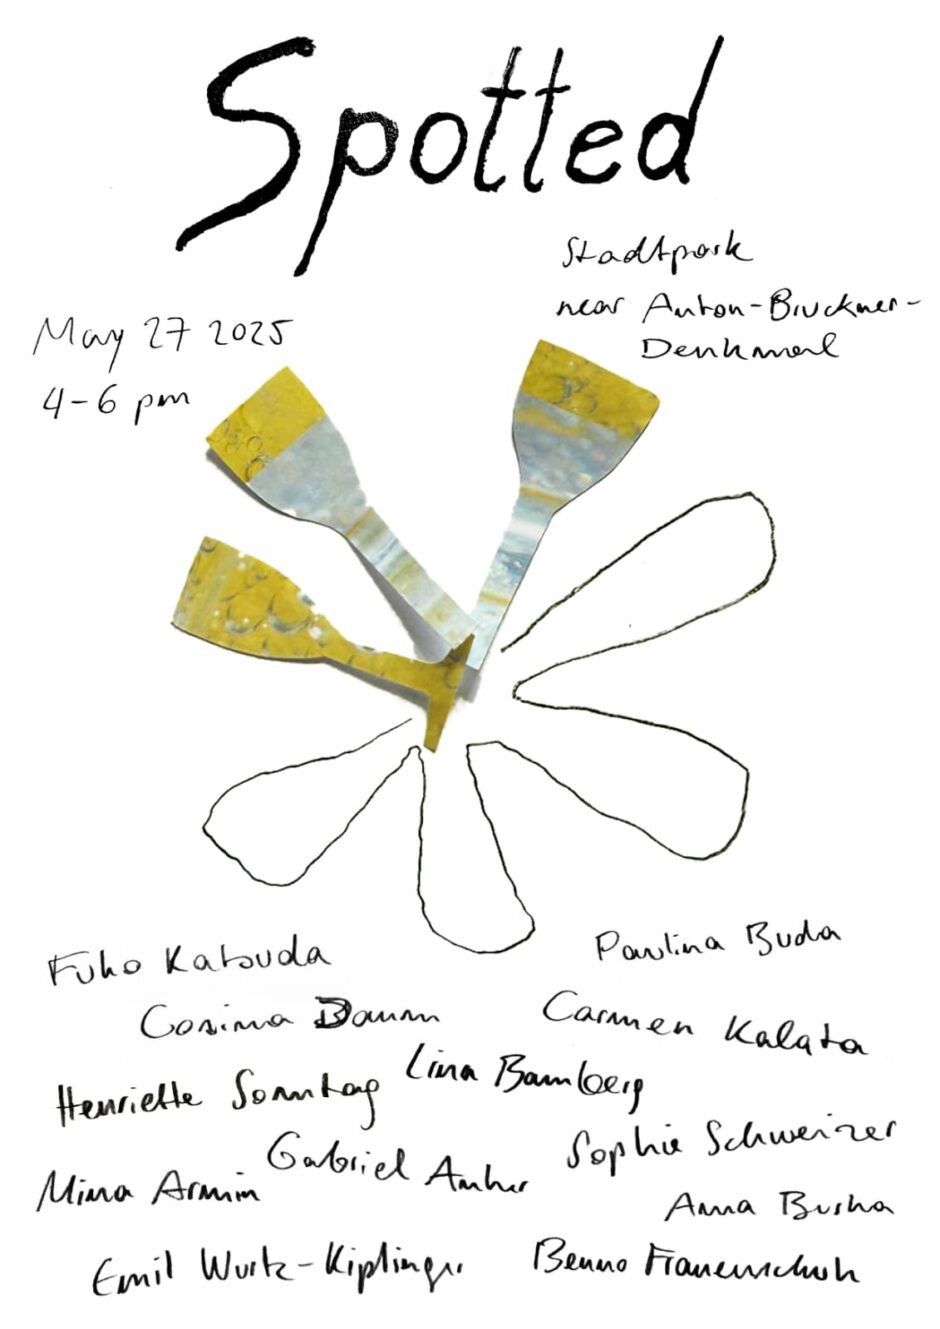 Spotted
Stadtpark
near Anton-Bruckner-
Denkmal
May 27 2025
4-6 pm
Fuho Katsuda
Paulina Buda
Cosima Baum
Carmen Kalata
Henriette Sonntag
Lina Bamberg
Gabriel
Sophie Schweizer
Mina Armin
Anna
Emil Wurtz-Kiplinger
Benno Frauenschuh